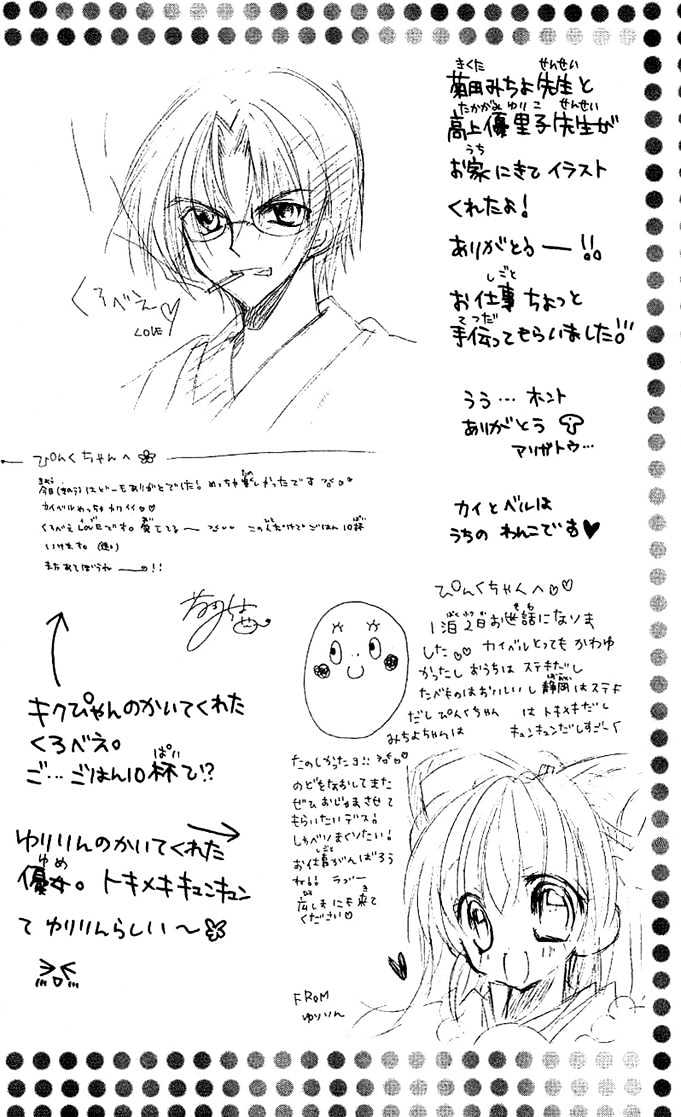 菊田みちよ先生と
高上優里子先生が
お家にきてイラスト
くれたよ!
ありがとうー!!
お仕事ちょっと
手伝ってもらいました!!
うう…ホント
ありがとう
アリガトウ…
カイとベルは
うちのわんこです♥
くろべえ♡
LOVE
ぴんくちゃんへ
今日(きのう)はどーもありがとでした!めっちゃ楽しかったです
カイベルめっちゃカワイイ♡♡
くろべえLOVEです。愛してる〜 このくだけでごはん10杯
いけます。
またあそぼうね
!!
キクぴゃんのかいてくれた
くろべえ。
ご…ごはん10杯で!?
ゆりりんのかいてくれた
優女。トキメキキュンキュン
て ゆりりんらしい〜
ぴんくちゃんへ♡♡
1泊2日お世話になりま
した♡♡ カイベルとってもかわゆ
かったし おうちはステキだし
たべものはおいしいし静岡はステキ
だし ぴんくちゃんはトキメキだし
みちよちゃんはキュンキュンだしすごーく
たのしかったョ!!
のどをなおしてまた
ぜひおじゃまさせて
もらいたいデス!
しゃべりまくりたい!
お仕事がんばろう
ね!! ラブー
広しまにも来て
ください♡
FROM
ゆりりん